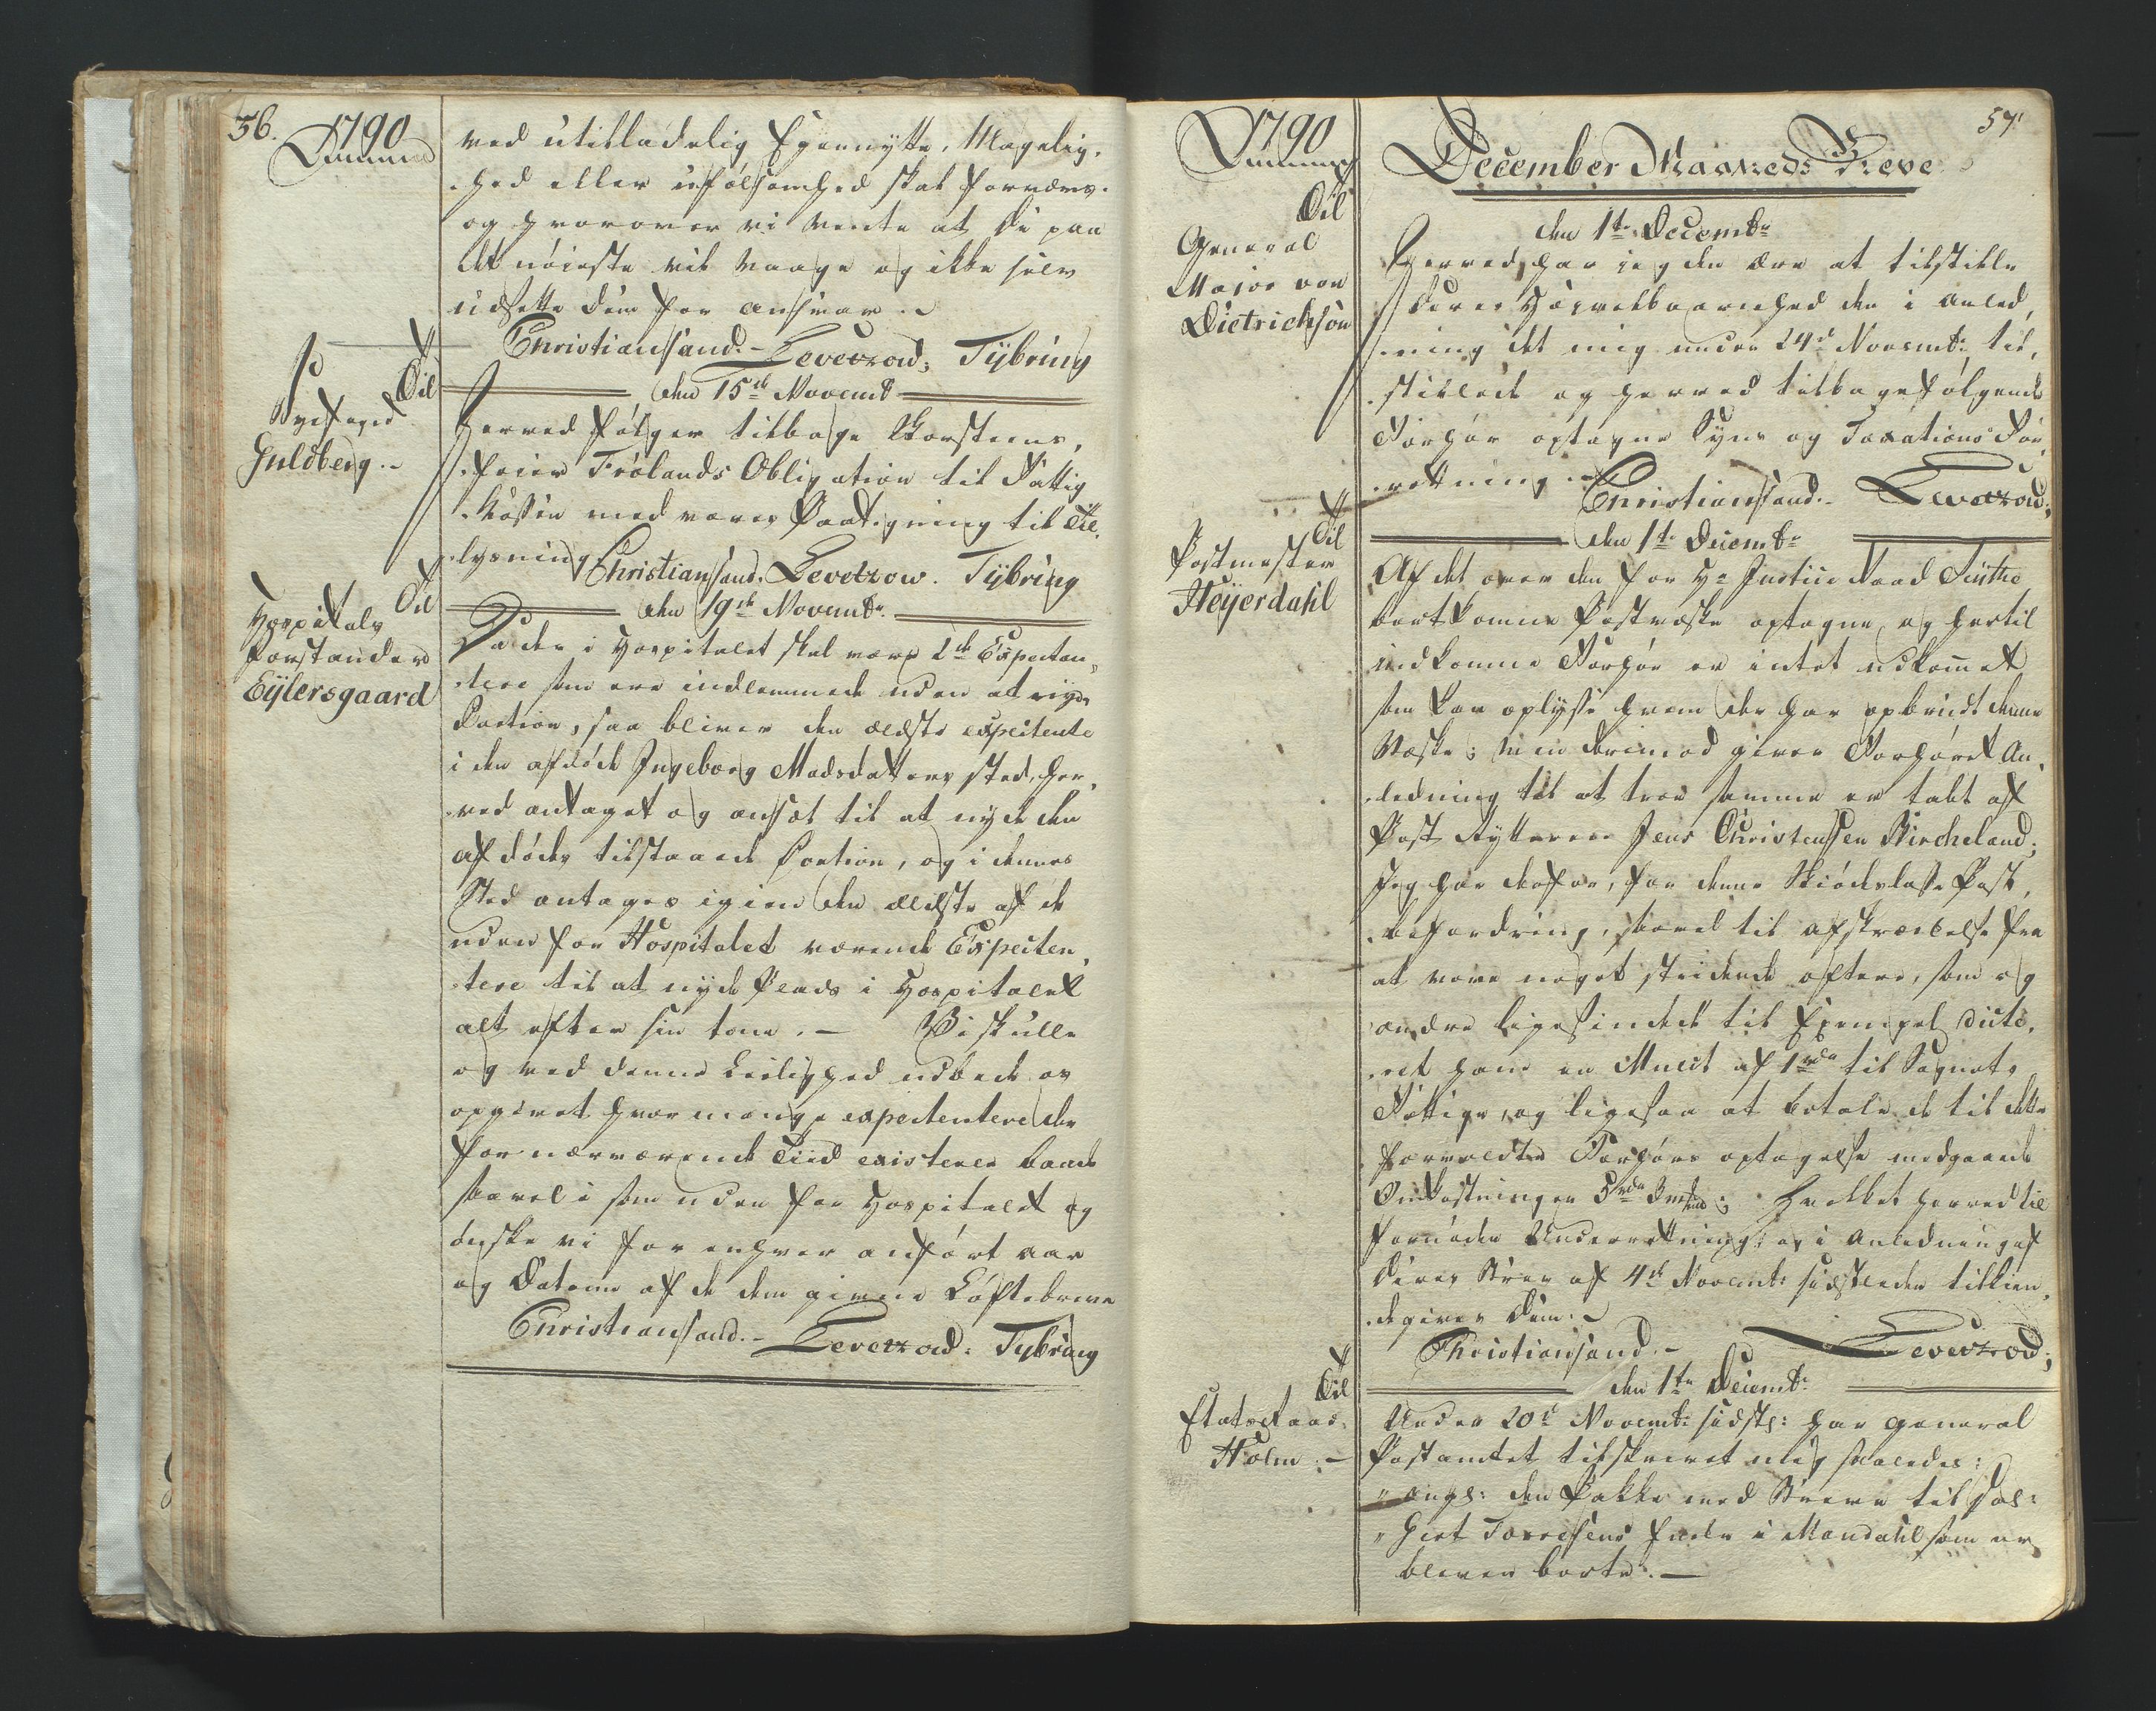 56.
1790
ved utilladelig Egennytte, Magelig,
hed eller ufølsomhed skal forværes.
og hvorover vi vente at De paa
det nøieste vil vaage og ikke selv
udsette Dem for ansvar.
Christiansand. Levetzow; Tybring
Til
Byefoged
Guldberg.
den 15de Novembr
Herved følger tilbage Skorsteens,
feier Frølands Obligation til Fattig
Kassen med vores Paategning til Ud.
lysning Christiansand. Levetzow. Tybring
Til
Hospitals
forstander
Eylersgaard
den 19de Novembr.
Da der i Hospitalet skal være 2de Expectan,
tere som ere indlemmede uden at nyde
Portion, saa bliver den ældste expectente
i den afdøde Ingeborg Madsdatters sted, her,
ved antaget og ansat til at nyde den
afdødes tilstaaede Portion, og i dennes
Sted antages igien den ældste af de
uden for Hospitalet værende Expecten,
tere til at nyde Plads i Hospitalet
alt efter sin tour. Vi skulle
og ved denne Leilighed udbede os
opgivet hvor mange expectentere der
for nærværende Tiid existerer baade
saavel i som uden for Hospitalet og
ønske vi for enhver anført aar
og Datum af de dem givne Løftebreve
Christiansand. Levetzow: Tybring
57.
1790
December Maaneds Breve
Til
General
Major von
Dietrichson
den 1te Decembr
Herved har jeg den ære at tilstille
Deres Høyvelbaarenhed den i anled,
ning det mig under 24de Novembr: til,
stillede og herved tilbagefølgende
Forhør optagne Syns og Taxations For
retning. Christiansand. Levetzow;
Til
Postmester
Heyerdahl
den 1te Decembr
Af det over den for Hr Justice Raad
bortkomne Postveske optagne, og hertil
indkomne Forhør er intet udkommet
som kan oplyse hvem der har opbrudt denne
Veske; men derimod giver Forhøret An,
ledning til at troe samme er tabt af
Post Rytteren Jens Christenssen Bircheland;
Jeg har derfor, for denne Skiødesløse Post,
befordring, saavel til afskrækkelse fra
at vove noget stridende oftere, som og
andre ligesindede til Exempel dicte,
ret ham en Mulct af 1 rdr til Sognets
Fattige, og ligesaa at betale de til dette
forvoldte Forhørs optagelse medgaaede
Omkostninger 5 rdr Hvilket herved til
fornøden Underretning, og i Anledning af
Deres Brev af 4de Novembr: sidstleden tilkien,
degives Dem.
Christiansand. Levetzow;
Til
Etatsraad
Holm.
den 1te Decembr
Under 20de Novembr: sidstl: har General
Postamtet tilskrevet mig saaledes:
" angl: den Pakke med Breve til Sal:
" Giert Torresens Enke i Mandahl som er
bleven borte.